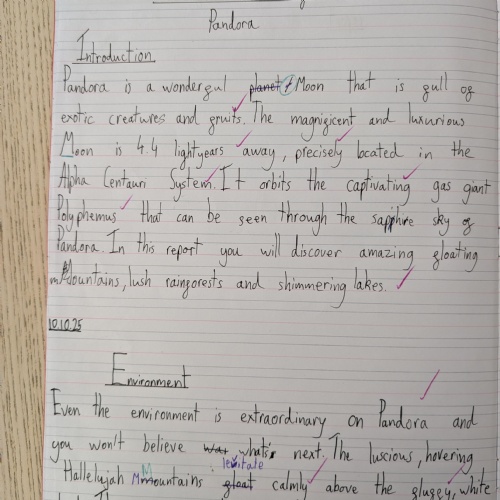 Pandora
Introduction
Pandora is a wonderful planet Moon that is full of
exotic creatures and fruits. The magnificent and luxurious
Moon is 4.4 lightyears away, precisely located in the
Alpha Centauri System. It orbits the captivating gas giant
Polyphemus that can be seen through the sapphire sky of
Pandora. In this report you will discover amazing floating
mountains, lush rainforests and shimmering lakes.
10.10.25
Environment
Even the environment is extraordinary on Pandora and
you won't believe what's next. The luscious, hovering
levitate
Hallelujah Mountains float calmly above the white